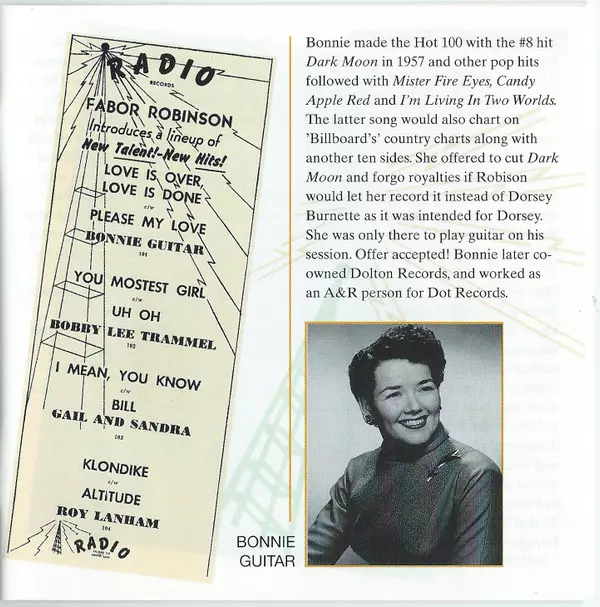 RADIO
RECORDS
FABOR ROBINSON
Introduces a lineup of
New Talent!-New Hits!
LOVE IS OVER,
LOVE IS DONE
c/w
PLEASE MY LOVE
BONNIE GUITAR
101
YOU MOSTEST GIRL
c/w
UH OH
BOBBY LEE TRAMMEL
102
I MEAN, YOU KNOW
c/w
BILL
GAIL AND SANDRA
103
KLONDIKE
c/w
ALTITUDE
ROY LANHAM
104
RADIO
Bonnie made the Hot 100 with the #8 hit
Dark Moon in 1957 and other pop hits
followed with Mister Fire Eyes, Candy
Apple Red and I'm Living In Two Worlds.
The latter song would also chart on
'Billboard's' country charts along with
another ten sides. She offered to cut Dark
Moon and forgo royalties if Robison
would let her record it instead of Dorsey
Burnette as it was intended for Dorsey.
She was only there to play guitar on his
session. Offer accepted! Bonnie later co-
owned Dolton Records, and worked as
an A&R person for Dot Records.
BONNIE
GUITAR